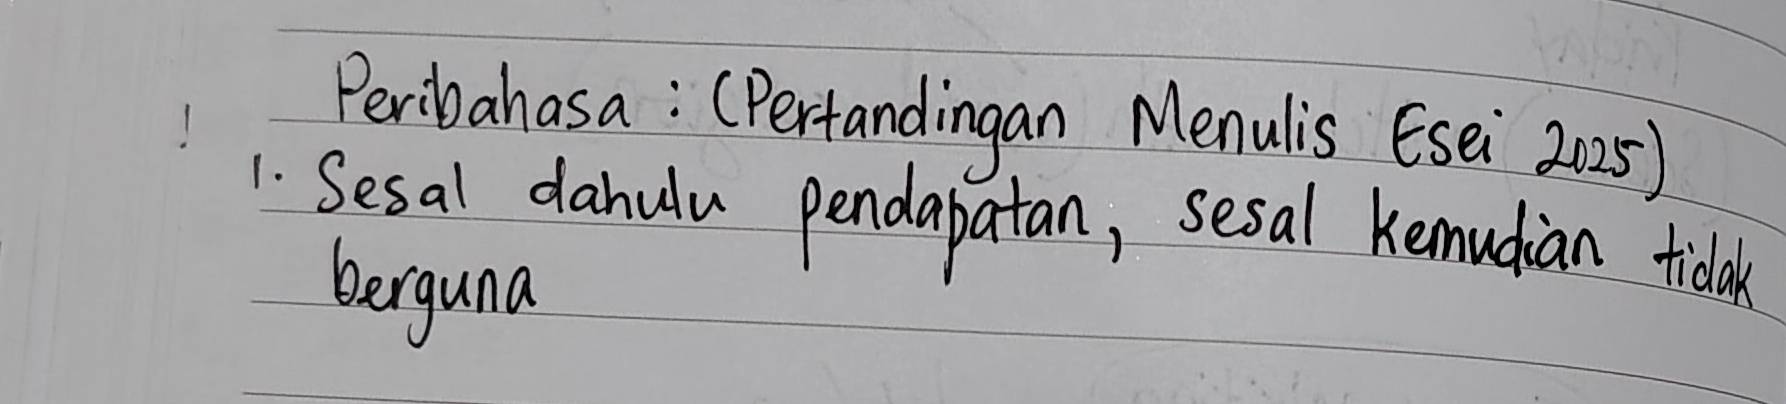 Peribahasa : (Pertandingan Menulis Esei 2025)
1. Sesal dahulu pendapatan, sesal kemudian tidak
berguna